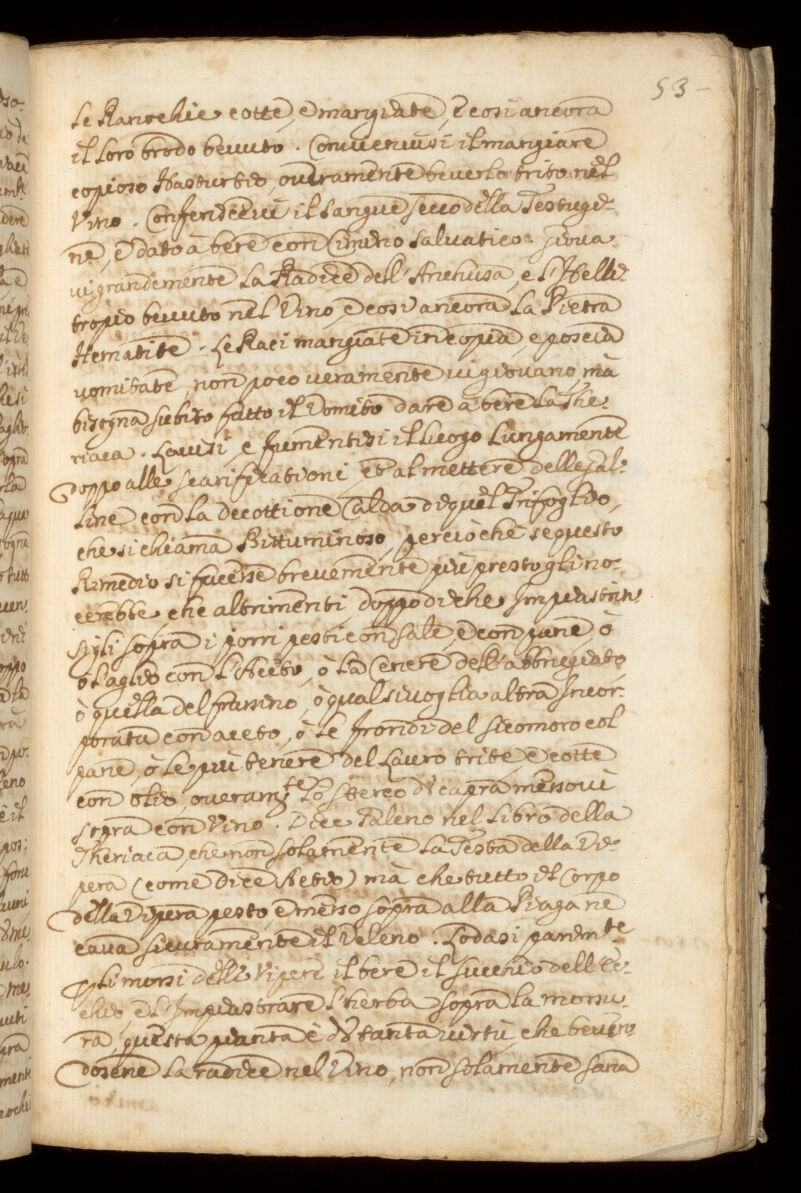 53
Le Ranochie cotte, e mangiate, e così ancora
il loro brodo bevuto. Convienvisi il mangiare
copioso Nasturtio, overamente beverlo trito nel
Vino. Conferiscevi il sangue secco della Testugi=
ne, e dato à bere con Cimino salvatico. Giova
vi grandemente La Radice dell'Anchusa, e l'Helio
tropio bevuto nel Vino, e così ancora La Pietra
Hematite. Le Naci mangiate in copia, e poscia
vomitate non poco veramente vi giovano, mà
bisogna subito fatto il Vomito dare à bere La The=
riaca. Lavisi, e fumentisi il luogo Lungamente
doppo alle scarificationi, et al mettere delle gal=
line con la decottione Calda di quel Trifoglio,
che si chiama Bittuminoso, perciò che se questo
Rimedio si facesse brevemente più presto gli no=
cerebbe, che altrimenti doppo di che Impiastrin
sigli sopra i porri pesti con sale, e con pane, ò
ò l'aglio con l'Aceto, ò La Cenere dell'abbrugiato
ò quella del frassino, ò qual si voglia altra Incor=
porata con aceto, ò le frondi del sicomoro col
pane, ò le più tenere del Lauro trite, e cotte
con olio, overamte Lo stereo di capra messovi
sopra con Vino. Dice Galeno nel Libro della
Theriaca, che non solamente La Testa della Vi=
pera (come dice Aetio) mà che tutto il Corpo
della Vipera pesto, e messo sopra alla Piaga ne
cava sicuramente il Veleno. Lodasi parimte
à i morsi delle Vipere il bere il succhio dell'Ec=
chio, e l'Impiastrare l'herba sopra la morsu=
ra, questa pianta è di tanta virtù, che beven
dosene La radice nel Vino, non solamente sana